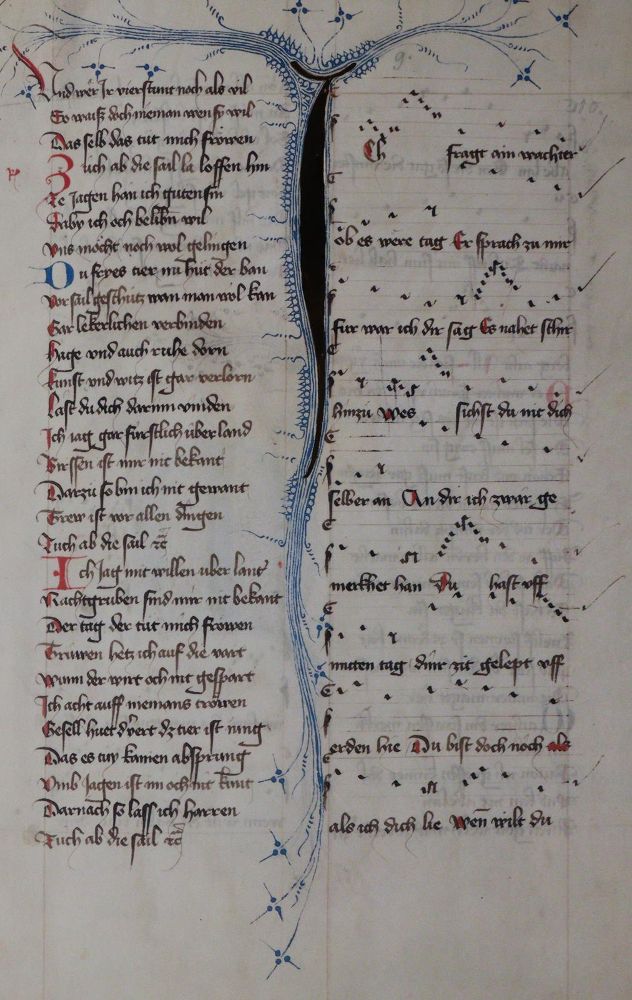 Und wer Ir vierstunt noch als vil
Er waiß doch nieman wen sy wil
Das selb das tut mich fröwen
Zuch ab die sail la loffen hin
Ze Jagen han ich guten sin
Daby ich och beliben wil
Uns möcht noch wol gelingen
Du freyes tier nu hüt der ban
Vor sail geschütz wan man wol kan
Gar lekerlichen verbinden
Hage und auch ruhe dorn
Kunst und witz ist gar verlorn
Last du dich darinn vinden
Ich iag gar fürstlich über land
Birssen ist mir nit bekant
Darzu so bin ich nit gewant
Trew ist vor allen dingen
Zuch ab die sail
Ich Jag mit willen über lant
Nachtgruben sind mir nit bekant
Der tag der tut mich fröwen
Truwen hetz ich auf die vart
Wunn der wirt och nit gespart
Ich acht auff niemans tröwen
Gesell huet ist nung
Das es tüy kainen absprung
Umb Jagen ist im och nit kunt
Darnach so lass ich harren
Zuch ab die sail
Ich fragt ain wachter
ob es were tag Er sprach zu mir
für war ich dir sag Es nahet schir
hinzu wes sichst du nit dich
selber an An dir ich zwar ge
merkhet han Du hast uff
mitten tag dinr zit gelept uff
erden hie Du bist doch noch als
als ich dich lie Wen wilt du